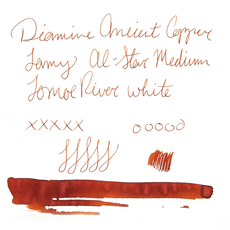 Diamine Ancient Copper
Lamy Al-Star Medium
Tomoe River white
xxxxx ooooo